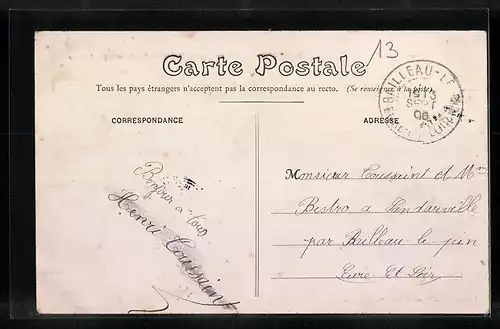 13
Carte Postale
Tous les pays étrangers n'acceptent pas la correspondance au recto. (Se renseigner à la poste)
BAILLEAU-LE
CORRESPONDANCE
ADRESSE
Bonjour a tous
Henri Toussaint
Monsieur Toussaint et Mme
Bistro a Dandarville
par Bailleau le pin
Eure Et Loir